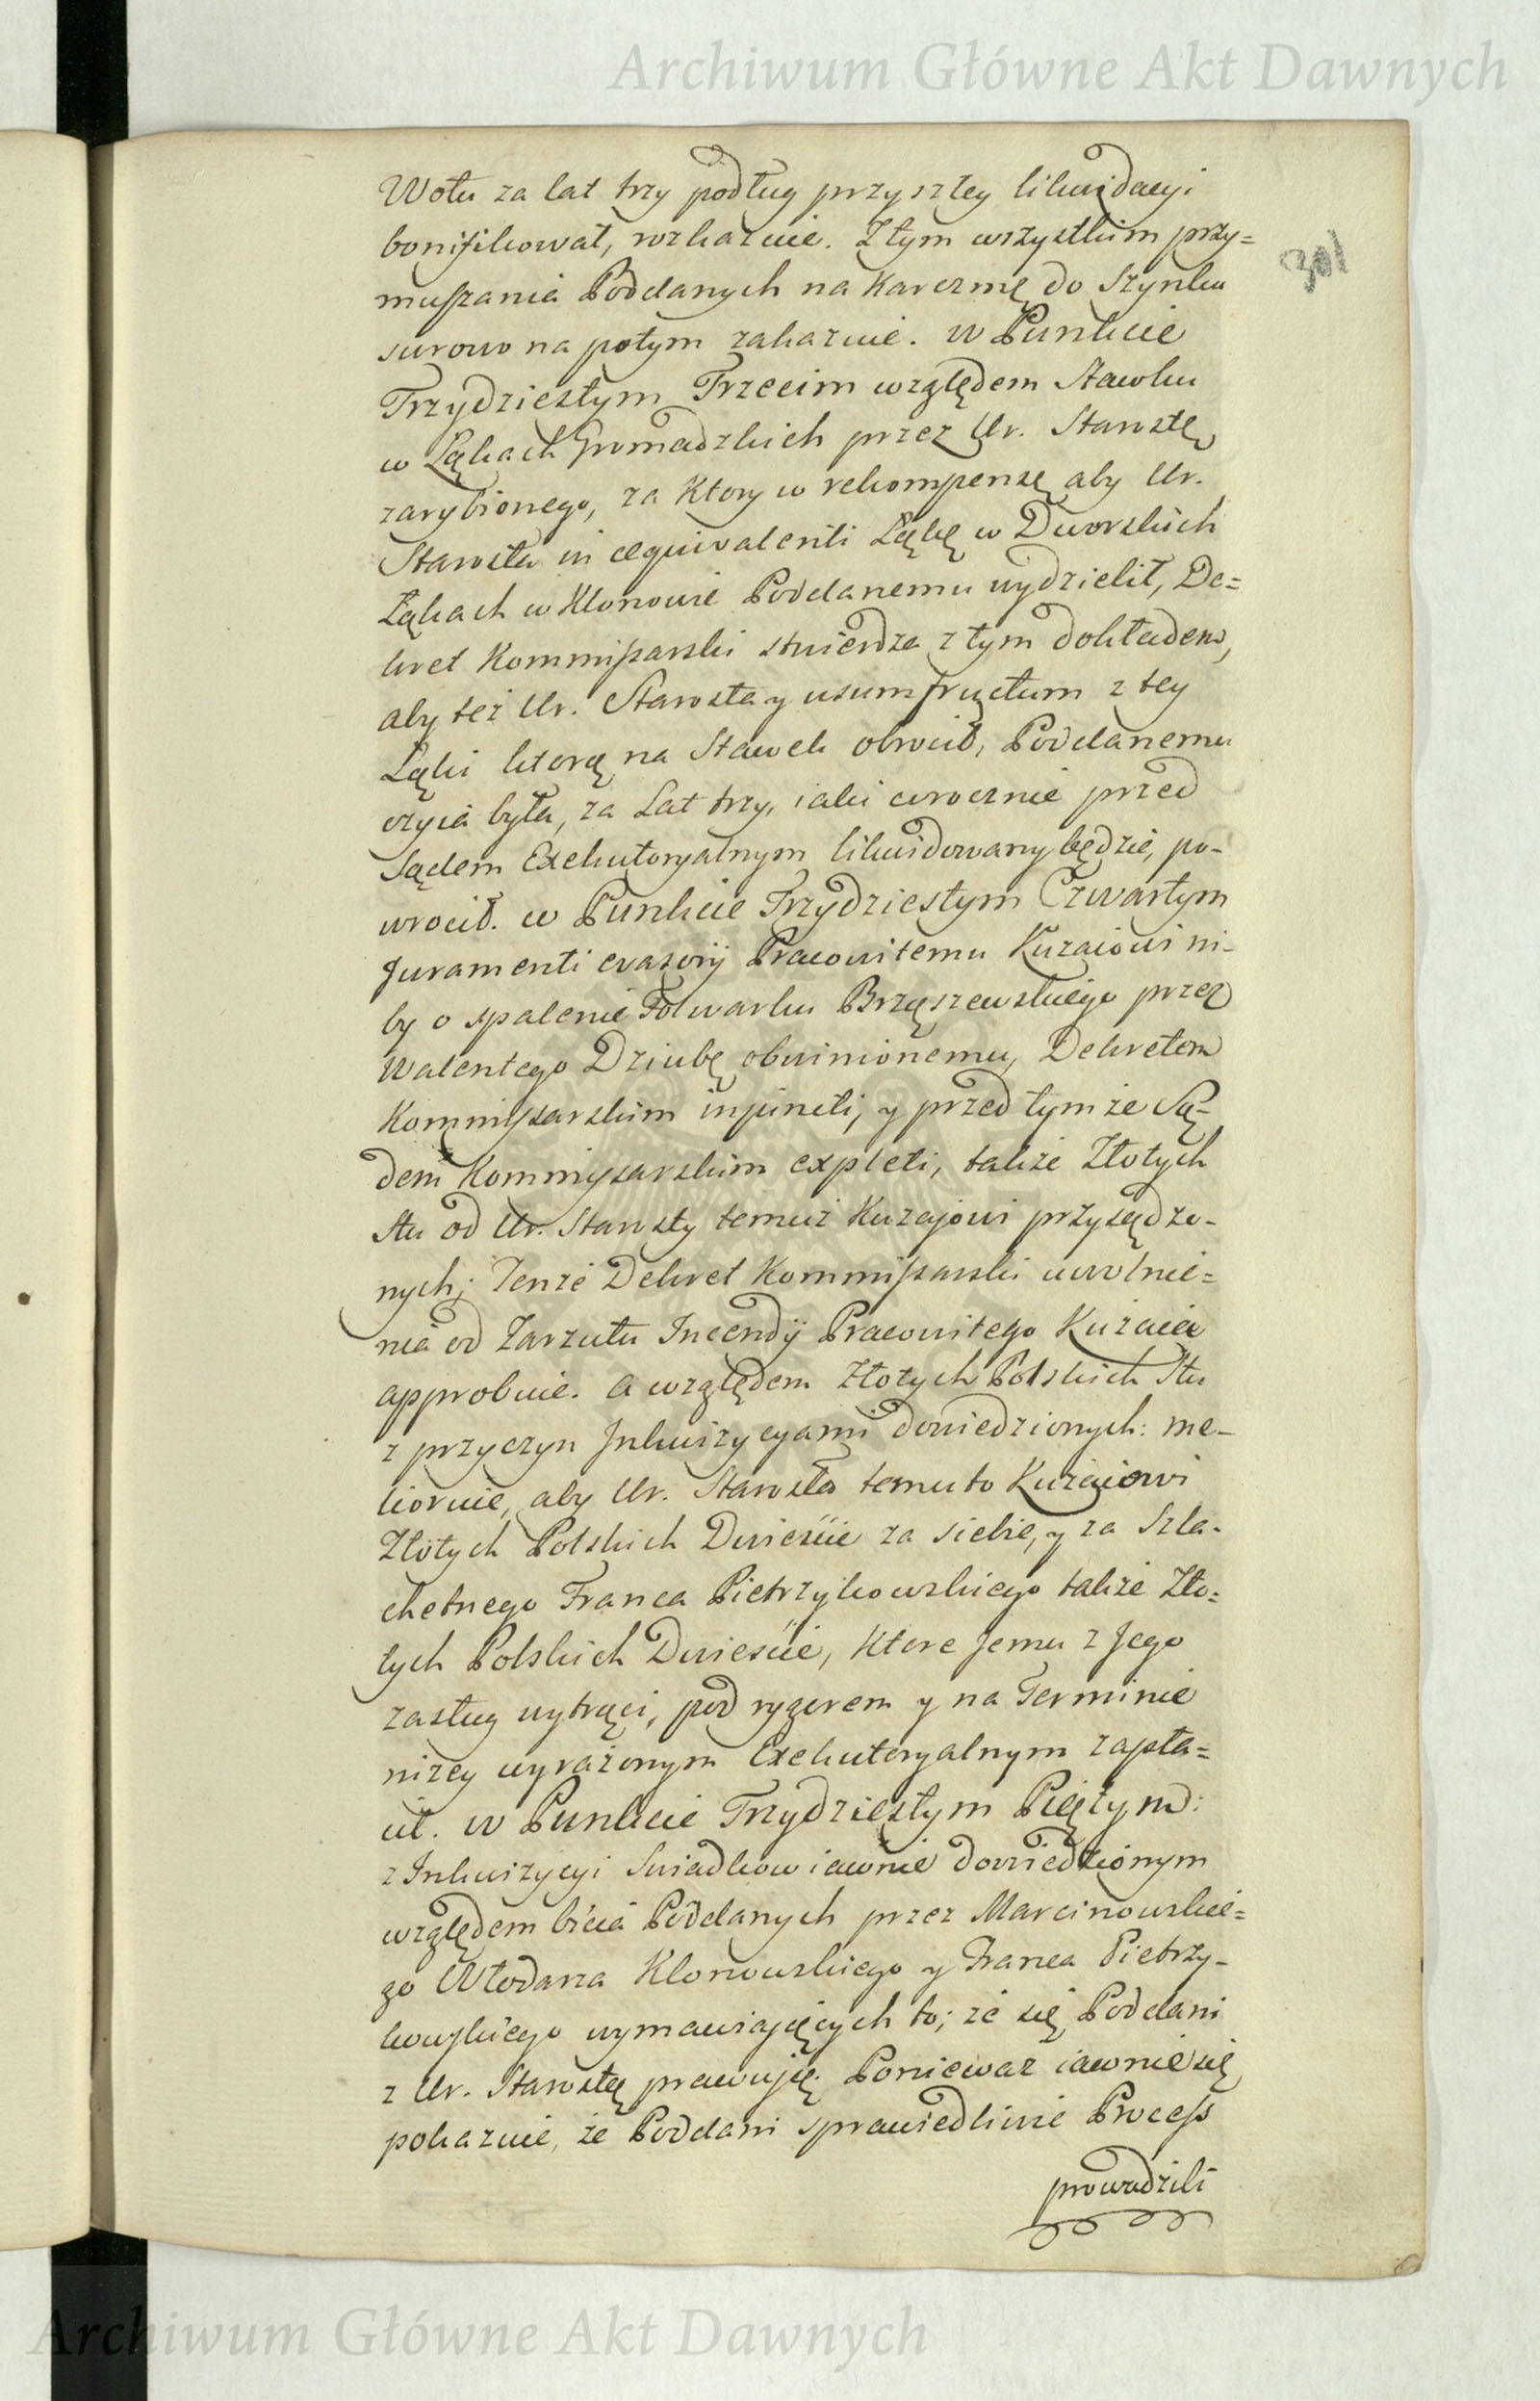 Archiwum Główne Akt Dawnych
301
Wołu za lat trzy podług przyszłey likwidacyi
bonifikował, rozkazuie. Z tym wszystkim przy=
muszania Poddanych na Karczmę do Szynku
surowo na potym zakazuie. w Punkcie
Trzydziestym Trzecim względem Stawku
w Łąkach Gromadzkich przez Ur. Starostę
zarybionego, za Ktory w rekompensę aby Ur.
Starosta in aequivalenti Łąkę w Dworskich
Łąkach w Klonowie Poddanemu wydzielił, De=
kret Kommissarski stwierdza z tym dokładem,
aby też Ur. Starosta y usumfructum z tey
Łąki ktorą na Stawek obrocił, Poddanemu
czyia była, za Lat trzy, iaki corocznie przed
Sądem Exekutoryalnym likwidowany będzie, po-
wrocił. w Punkcie Trzydziestym Czwartym
Juramenti evasorij Pracowitemu Kuzaiowi ni-
by o spalenie Folwarku Brząszewskiego przez
Walentego Dziubę obwinionemu, Dekretem
Kommissarskim injuncti, y przed tym że Są=
dem Kommissarskim expleti, także Złotych
Stu od Ur. Starosty temuż Kuzajowi przysądzo-
nych; Tenże Dekret Kommissarski uwolnie=
nia od Zarzutu Incendij Pracowitego Kuzaia
approbuie. a względem Złotych Polskich Stu
z przyczyn Inkwizycyami dowiedzionych: me-
lioruie, aby Ur. Starosta temuto Kuzaiowi
Złotych Polskich Dwieście za siebie, y za Szla-
chetnego Franca Pietrzykowskiego także Zło=
tych Polskich Dwieście, Ktore Jemu z Jego
zasług wytrąci, pod rygorem y na Terminie
niżey wyrażonym Exekutoryalnym zapła=
cił. w Punkcie Trzydziestym Piątym:
z Inkwizycyi Swiadkow iawnie dowiedzionym
względem bicia Poddanych przez Marcinowskie=
go Włodarza Klonowskiego y Franca Pietrzy-
kowskiego wymawiaiących to; że się Poddani
z Ur. Starostą prawuią. Poniewaz iawnie się
pokazuie, że Poddani sprawiedliwie Process
prowadzili
Archiwum Główne Akt Dawnych